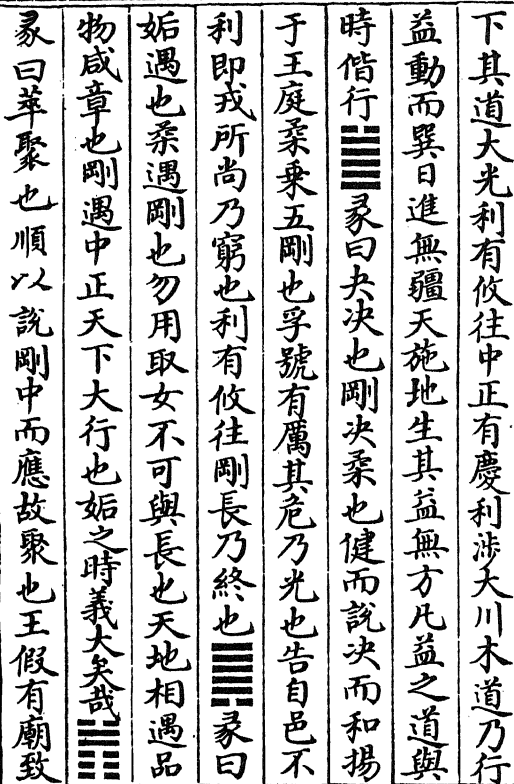 下其道大光利有攸往中正有慶利涉大川木道乃行
益動而巽日進無疆天施地生其益無方凡益之道與
時偕行䷪彖曰夬決也剛決柔也健而說決而和揚
于王庭柔乗五剛也孚號有厲其危乃光也告自邑不
利即戎所尚乃窮也利有攸往剛長乃終也䷫彖曰
姤遇也柔遇剛也勿用取女不可與長也天地相遇品
物咸章也剛遇中正天下大行也姤之時義大矣哉䷬
彖曰萃聚也順以說剛中而應故聚也王假有廟致